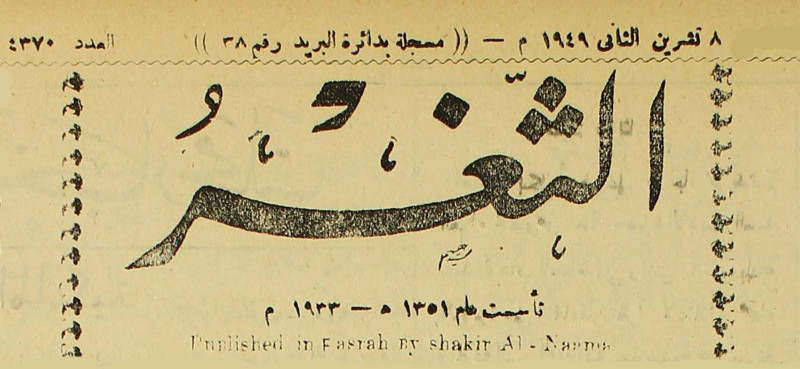 ٨ تشرين الثاني ١٩٤٩ م — (( مسجلة بدائرة البريد رقم ٣٨ )) العدد ٤٣٧٠
الثَّغْرُ
تأسست عام ١٣٥١ ه — ١٩٣٣ م
Published in Basrah By shakir Al - Naama